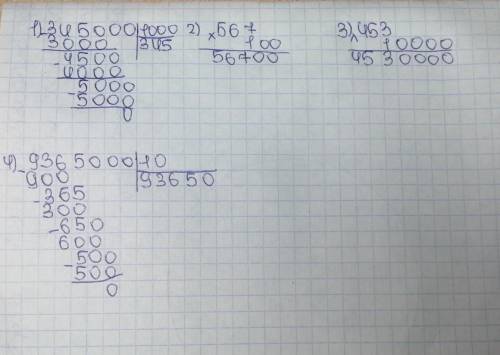 1) 345000 | 1000
3000 | 345
-4500
4000
-5000
-5000
0
2) ×567
100
56700
3) ×453
10000
4530000
4) -9365000 | 10
900 | 93650
-365
300
-650
600
-500
500
0